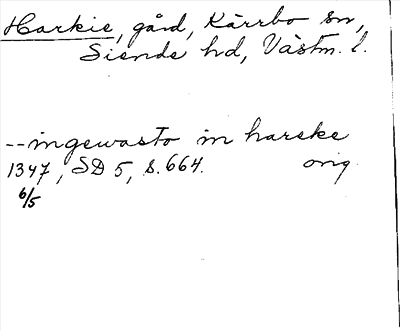 Harkie, gård, Kärrbo sn,
Siende hd, Västm. l.
--ingewasto in harske
1347, SD 5, s. 664. orig.
6/5